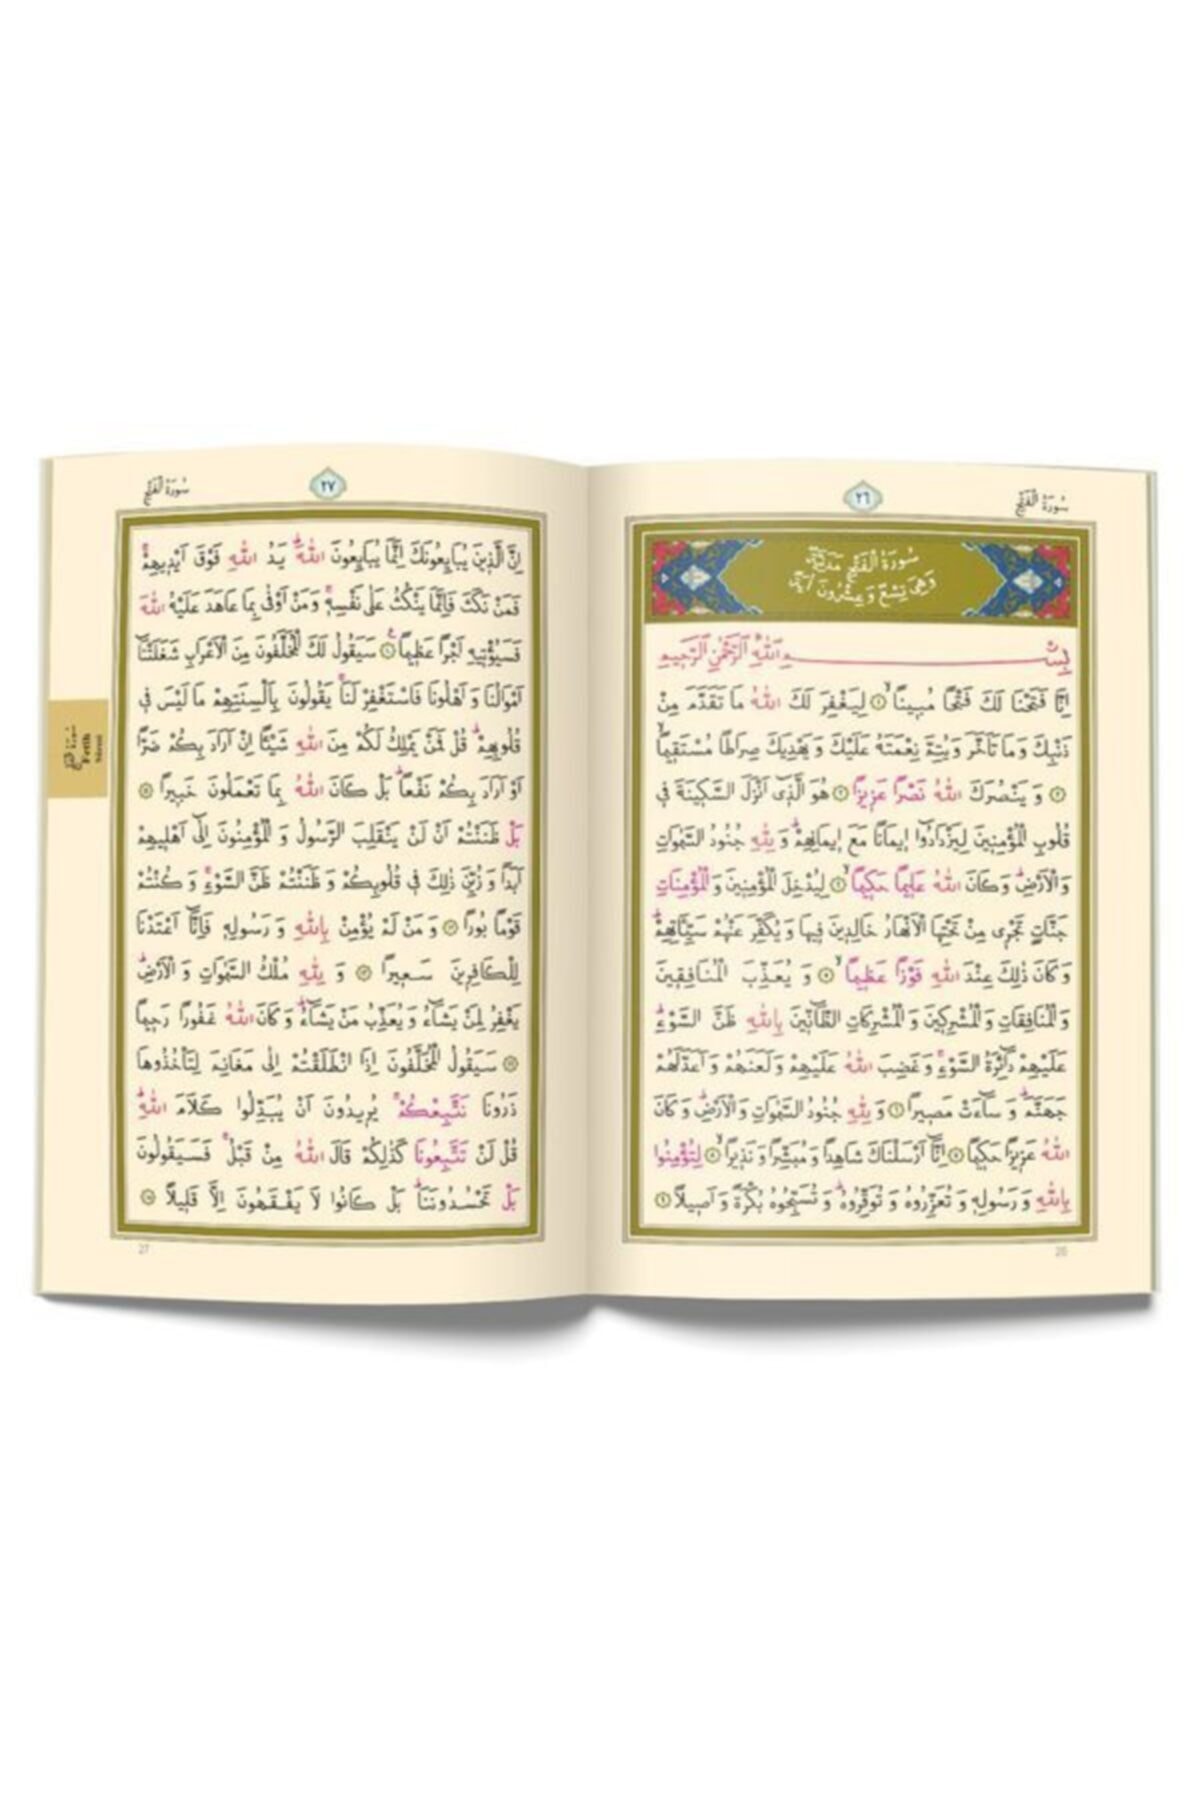 سُورَةُ الْفَتْحِ
٢٦
سُورَةُ الْفَتْحِ مَدَنِيَّةٌ
وَهِيَ تِسْعٌ وَعِشْرُونَ اٰيَةً
بِسْمِ اللّٰهِ الرَّحْمٰنِ الرَّحِيمِ
اِنَّا فَتَحْنَا لَكَ فَتْحًا مُبِينًاۙ ﴿١﴾ لِيَغْفِرَ لَكَ اللّٰهُ مَا تَقَدَّمَ مِنْ
ذَنْبِكَ وَمَا تَاَخَّرَ وَيُتِمَّ نِعْمَتَهُ عَلَيْكَ وَيَهْدِيَكَ صِرَاطًا مُسْتَقِيمًاۙ
﴿٢﴾ وَيَنْصُرَكَ اللّٰهُ نَصْرًا عَزِيزًا ﴿٣﴾ هُوَ الَّذِٓي اَنْزَلَ السَّكِينَةَ فِي
قُلُوبِ الْمُؤْمِنِينَ لِيَزْدَادُٓوا اِيمَانًا مَعَ اِيمَانِهِمْۜ وَلِلّٰهِ جُنُودُ السَّمٰوَاتِ
وَالْاَرْضِۜ وَكَانَ اللّٰهُ عَلِيمًا حَكِيمًاۙ ﴿٤﴾ لِيُدْخِلَ الْمُؤْمِنِينَ وَالْمُؤْمِنَاتِ
جَنَّاتٍ تَجْرِي مِنْ تَحْتِهَا الْاَنْهَارُ خَالِدِينَ فِيهَا وَيُكَفِّرَ عَنْهُمْ سَيِّـَٔاتِهِمْۜ
وَكَانَ ذٰلِكَ عِنْدَ اللّٰهِ فَوْزًا عَظِيمًاۙ ﴿٥﴾ وَيُعَذِّبَ الْمُنَافِقِينَ
وَالْمُنَافِقَاتِ وَالْمُشْرِكِينَ وَالْمُشْرِكَاتِ الظَّٓانِّينَ بِاللّٰهِ ظَنَّ السَّوْءِۜ
عَلَيْهِمْ دَٓائِرَةُ السَّوْءِۚ وَغَضِبَ اللّٰهُ عَلَيْهِمْ وَلَعَنَهُمْ وَاَعَدَّ لَهُمْ
جَهَنَّمَۜ وَسَٓاءَتْ مَصِيرًا ﴿٦﴾ وَلِلّٰهِ جُنُودُ السَّمٰوَاتِ وَالْاَرْضِۜ وَكَانَ
اللّٰهُ عَزِيزًا حَكِيمًا ﴿٧﴾ اِنَّٓا اَرْسَلْنَاكَ شَاهِدًا وَمُبَشِّرًا وَنَذِيرًاۙ ﴿٨﴾ لِتُؤْمِنُوا
بِاللّٰهِ وَرَسُولِهِ وَتُعَزِّرُوهُ وَتُوَقِّرُوهُۜ وَتُسَبِّحُوهُ بُكْرَةً وَاَصِيلًا ﴿٩﴾
سُورَةُ الْفَتْحِ
٢٧
اِنَّ الَّذِينَ يُبَايِعُونَكَ اِنَّمَا يُبَايِعُونَ اللّٰهَۜ يَدُ اللّٰهِ فَوْقَ اَيْدِيهِمْۚ
فَمَنْ نَكَثَ فَاِنَّمَا يَنْكُثُ عَلٰى نَفْسِهِۚ وَمَنْ اَوْفٰى بِمَا عَاهَدَ عَلَيْهُ اللّٰهَ
فَسَيُؤْتِيهِ اَجْرًا عَظِيمًا ﴿١٠﴾ سَيَقُولُ لَكَ الْمُخَلَّفُونَ مِنَ الْاَعْرَابِ شَغَلَتْنَٓا
اَمْوَالُنَا وَاَهْلُونَا فَاسْتَغْفِرْ لَنَاۚ يَقُولُونَ بِاَلْسِنَتِهِمْ مَا لَيْسَ فِي
قُلُوبِهِمْۜ قُلْ فَمَنْ يَمْلِكُ لَكُمْ مِنَ اللّٰهِ شَيْـًٔا اِنْ اَرَادَ بِكُمْ ضَرًّا
اَوْ اَرَادَ بِكُمْ نَفْعًاۜ بَلْ كَانَ اللّٰهُ بِمَا تَعْمَلُونَ خَبِيرًا ﴿١١﴾
بَلْ ظَنَنْتُمْ اَنْ لَنْ يَنْقَلِبَ الرَّسُولُ وَالْمُؤْمِنُونَ اِلٰٓى اَهْلِيهِمْ
اَبَدًا وَزُيِّنَ ذٰلِكَ فِي قُلُوبِكُمْ وَظَنَنْتُمْ ظَنَّ السَّوْءِۚ وَكُنْتُمْ
قَوْمًا بُورًا ﴿١٢﴾ وَمَنْ لَمْ يُؤْمِنْ بِاللّٰهِ وَرَسُولِهِ فَاِنَّٓا اَعْتَدْنَا
لِلْكَافِرِينَ سَعِيرًا ﴿١٣﴾ وَلِلّٰهِ مُلْكُ السَّمٰوَاتِ وَالْاَرْضِۜ
يَغْفِرُ لِمَنْ يَشَٓاءُ وَيُعَذِّبُ مَنْ يَشَٓاءُۜ وَكَانَ اللّٰهُ غَفُورًا رَحِيمًا
﴿١٤﴾ سَيَقُولُ الْمُخَلَّفُونَ اِذَا انْطَلَقْتُمْ اِلٰى مَغَانِمَ لِتَأْخُذُوهَا
ذَرُونَا نَتَّبِعْكُمْۚ يُرِيدُونَ اَنْ يُبَدِّلُوا كَلَامَ اللّٰهِۜ
قُلْ لَنْ تَتَّبِعُونَا كَذٰلِكُمْ قَالَ اللّٰهُ مِنْ قَبْلُۚ فَسَيَقُولُونَ
بَلْ تَحْسُدُونَنَاۜ بَلْ كَانُوا لَا يَفْقَهُونَ اِلَّا قَلِيلًا ﴿١٥﴾
27
سُورَةُ الْفَتْحِ
Fetih
Sûresi